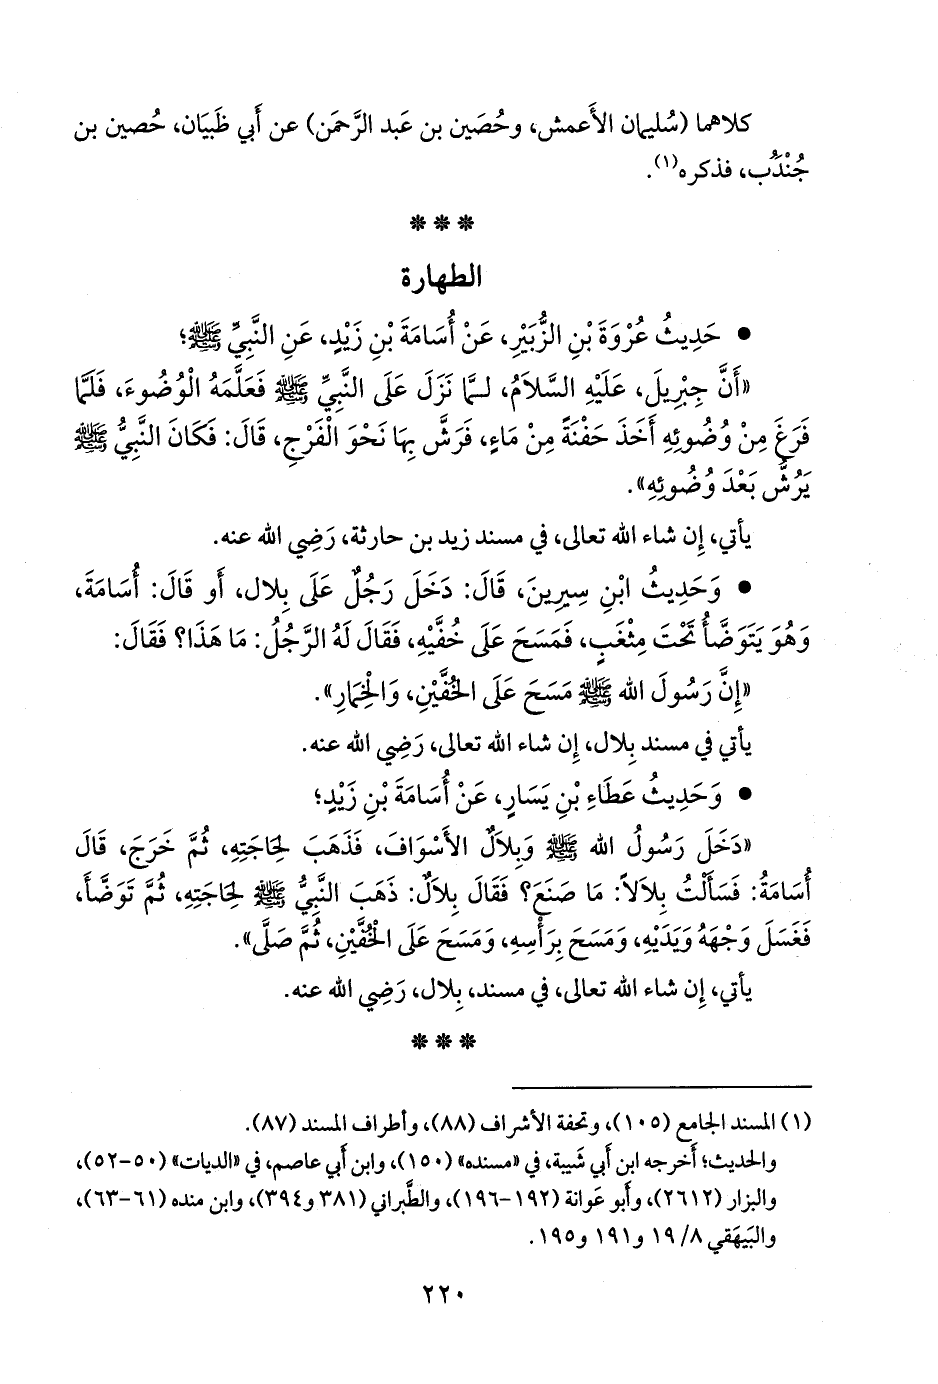 كلاهما (سُليمان الأَعمش، وحُصَين بن عَبد الرَّحمَن) عن أَبي ظَبيَان، حُصين بن
جُنْدُب، فذكره(١).
* * *
الطهارة
• حَدِيثُ عُرْوَةَ بْنِ الزُّبَيْرِ، عَنْ أُسَامَةَ بْنِ زَيْدٍ، عَنِ النَّبِيِّ ﷺ؛
«أَنَّ جِبْرِيلَ، عَلَيْهِ السَّلاَمُ، لـمَّا نَزَلَ عَلَى النَّبِيِّ ﷺ فَعَلَّمَهُ الْوُضُوءَ، فَلَمَّا
فَرَغَ مِنْ وُضُوئِهِ أَخَذَ حَفْنَةً مِنْ مَاءٍ، فَرَشَّ بِهَا نَحْوَ الْفَرْجِ، قَالَ: فَكَانَ النَّبِيُّ ﷺ
يَرُشُّ بَعْدَ وُضُوئِهِ».
يأتي، إن شاء الله تعالى، في مسند زيد بن حارثة، رَضِي الله عنه.
• وَحَدِيثُ ابْنِ سِيرِينَ، قَالَ: دَخَلَ رَجُلٌ عَلَى بِلاَل، أَو قَالَ: أُسَامَةَ،
وَهُوَ يَتَوَضَّأُ تَحْتَ مِثْغَبٍ، فَمَسَحَ عَلَى خُفَّيْهِ، فَقَالَ لَهُ الرَّجُلُ: مَا هَذَا؟ فَقَالَ:
«إِنَّ رَسُولَ الله ﷺ مَسَحَ عَلَى الْخُفَّيْنِ، وَالْخِمَارِ».
يأتي في مسند بِلال، إن شاء الله تعالى، رَضِي الله عنه.
• وَحَدِيثُ عَطَاءِ بْنِ يَسَارٍ، عَنْ أُسَامَةَ بْنِ زَيْدٍ؛
«دَخَلَ رَسُولُ الله ﷺ وَبِلاَلٌ الأَسْوَافَ، فَذَهَبَ لِحَاجَتِهِ، ثُمَّ خَرَجَ، قَالَ
أُسَامَةُ: فَسَأَلْتُ بِلاَلاً: مَا صَنَعَ؟ فَقَالَ بِلاَلٌ: ذَهَبَ النَّبِيُّ ﷺ لِحَاجَتِهِ، ثُمَّ تَوَضَّأَ،
فَغَسَلَ وَجْهَهُ وَيَدَيْهِ، وَمَسَحَ بِرَأْسِهِ، وَمَسَحَ عَلَى الْخُفَّيْنِ، ثُمَّ صَلَّى».
يأتي، إن شاء الله تعالى، في مسند، بِلال، رَضِي الله عنه.
* * *
(١) المسند الجامع (١٠٥)، وتحفة الأشراف (٨٨)، وأطراف المسند (٨٧).
والحديث؛ أَخرجه ابن أَبي شَيبة، في «مسنده» (١٥٠)، وابن أَبي عاصم، في «الديات» (٥٠-٥٢)،
والبزار (٢٦١٢)، وأَبو عَوانة (١٩٢-١٩٦)، والطَّبراني (٣٨١ و٣٩٤)، وابن منده (٦١-٦٣)،
والبَيهَقي ٨/ ١٩ و١٩١ و١٩٥.
٢٢٠